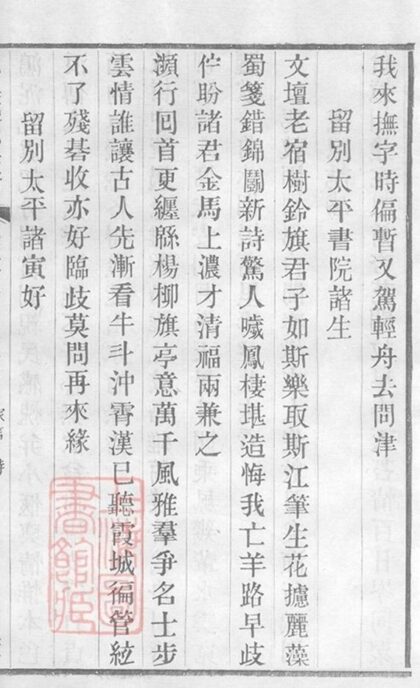 我來撫字時偏暫又駕輕舟去問津
留別太平書院諸生
文壇老宿樹鈴旗君子如斯樂取斯江筆生花攄麗藻
蜀箋錯錦鬭新詩驚人噦鳳棲堪造悔我亡羊路早歧
佇盼諸君金馬上濃才清福兩兼之
瀕行回首更纏緜楊柳旗亭意萬千風雅羣爭名士步
雲情誰讓古人先漸看牛斗沖霄漢已聽霞城徧管絃
不了殘碁收亦好臨歧莫問再來緣
留別太平諸寅好
書館